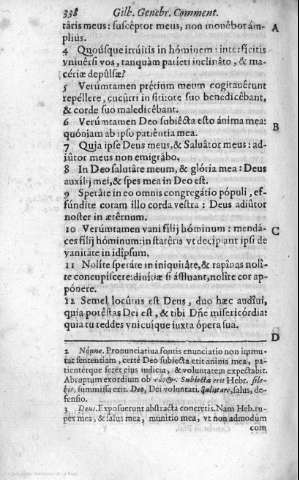 338 Gilb. Genebr. Comment.
táris meus: susceptor meus, non movêbor ám-
plius. A
4 Quoúsque irrúitis in hóminem: interficitis
univérsi vos, tanquàm paríeti inclináto, & ma-
cériæ depúlsæ?
5 Verúmtamen prétium meum cogitavérunt
repéllere, cucúrri in sitiore suo benedicébant,
& corde suo maledicébant.
6 Verúmtamen Deo subiécta esto ánima mea:
quóniam ab ipso patiéntia mea. B
7 Quia ipse Deus meus, & Salvátor meus: ad-
iútor meus non emigrábo.
8 In Deo salutáre meum, & glória mea: Deus
auxilij mei, & spes mea in Deo est.
9 Speráte in eo omnis congregátio pópuli, ef-
fúndite coram illo corda vestra: Deus adiútor
noster in ætérnum.
10 Verúmtamen vani filij hóminum: mendá- C
ces filij hóminum: in statéris vt decipiant ipsi de
vanitáte in idípsum.
11 Nolíte speráre in iniquitáte, & rapínas nolí-
te concupíscere: divítiæ si áffluant, nolíte cor ap-
pónere.
12 Semel locútus est Deus, duo hæc audívi,
quia potéstas Dei est, & tibi Dñe misericórdia:
quia tu reddes vnicuíque iuxta ópera sua.
D
2 Nónne. Pronunciativa fontis enunciatio non inmu-
tat sententiam, certè Deo subiecta erit anima mea,
patienterque feret eius iudicia, & voluntatem expectabit.
Abruptum exordium ob Subiecta erit Hebr. sile-
bit. summissa erit. Deo, Dei voluntati. salus, defen-
sio.
3 Deus. Exposuerunt abstracta concretis. Nam Heb. ru-
pes mea, & salus mea, munitio mea, vt non admodùm
com